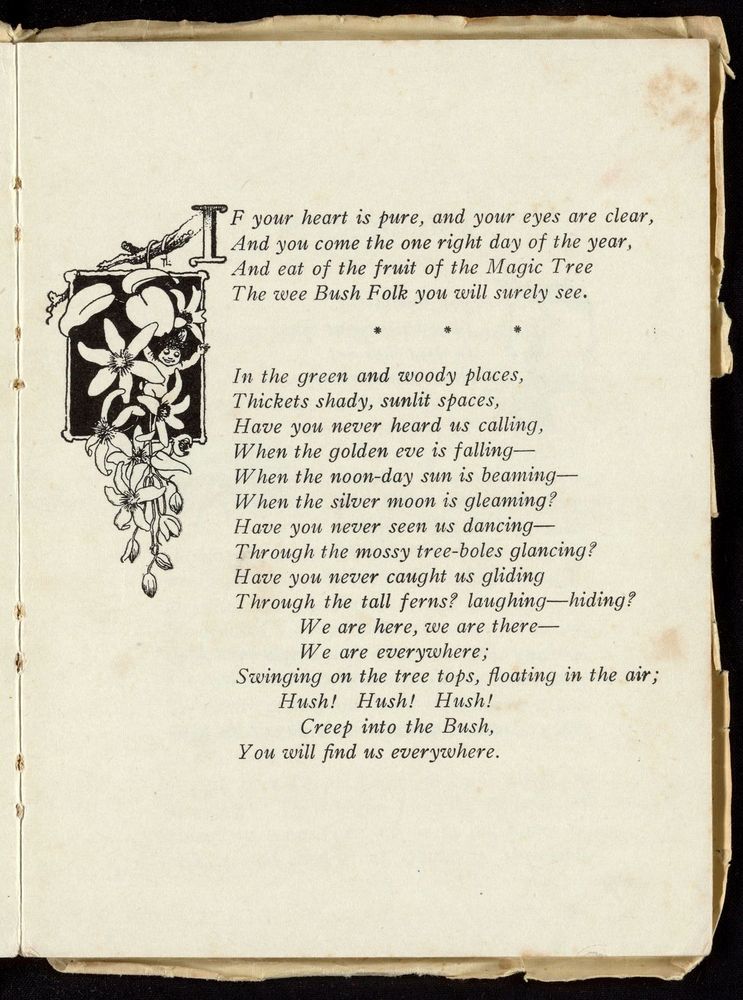 IF your heart is pure, and your eyes are clear,
And you come the one right day of the year,
And eat of the fruit of the Magic Tree
The wee Bush Folk you will surely see.
* * *
In the green and woody places,
Thickets shady, sunlit spaces,
Have you never heard us calling,
When the golden eve is falling—
When the noon-day sun is beaming—
When the silver moon is gleaming?
Have you never seen us dancing—
Through the mossy tree-boles glancing?
Have you never caught us gliding
Through the tall ferns? laughing—hiding?
We are here, we are there—
We are everywhere;
Swinging on the tree tops, floating in the air;
Hush! Hush! Hush!
Creep into the Bush,
You will find us everywhere.